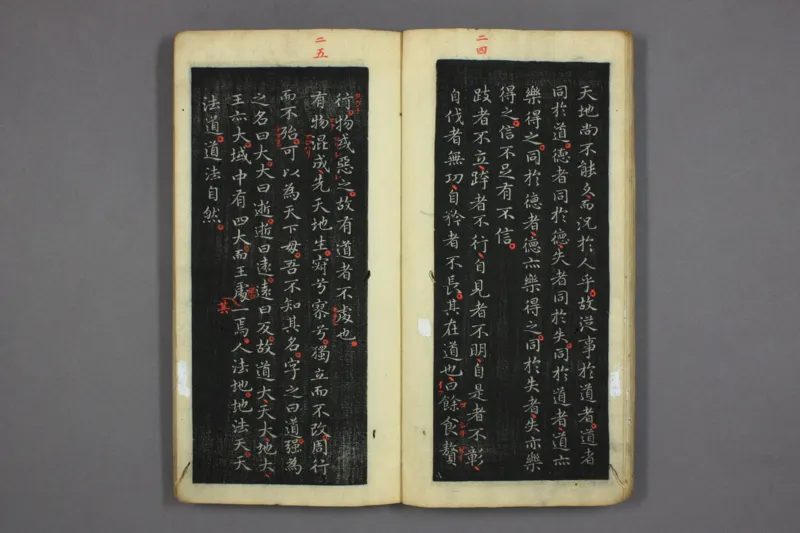 二四
天地尚不能久而況於人乎故從事於道者道者
同於道德者同於德失者同於失同於道者道亦
樂得之同於德者德亦樂得之同於失者失亦樂
得之信不足有不信
跂者不立跨者不行自見者不明自是者不彰
自伐者無功自矜者不長其在道也曰餘食贅
二五
行物或惡之故有道者不處也
有物混成先天地生寂兮寥兮獨立而不改周行
而不殆可以為天下母吾不知其名字之曰道强為
之名曰大大曰逝逝曰遠遠曰反故道大天大地大
王亦大域中有四大而王處一焉人法地地法天天
其
法道道法自然